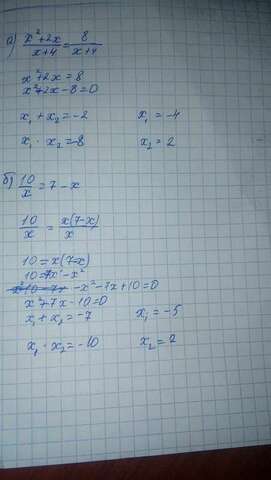 а) x²+2x/x+4 = 8/x+4
x²+2x=8
x²+2x-8=0
x₁+x₂=-2 x₁=-4
x₁·x₂=-8 x₂=2
б) 10/x=7-x
10/x = x(7-x)/x
10=x(7-x)
10=7x-x²
-x²-7x+10=0
x²+7x-10=0
x₁+x₂=-7 x₁=-5
x₁·x₂=-10 x₂=2